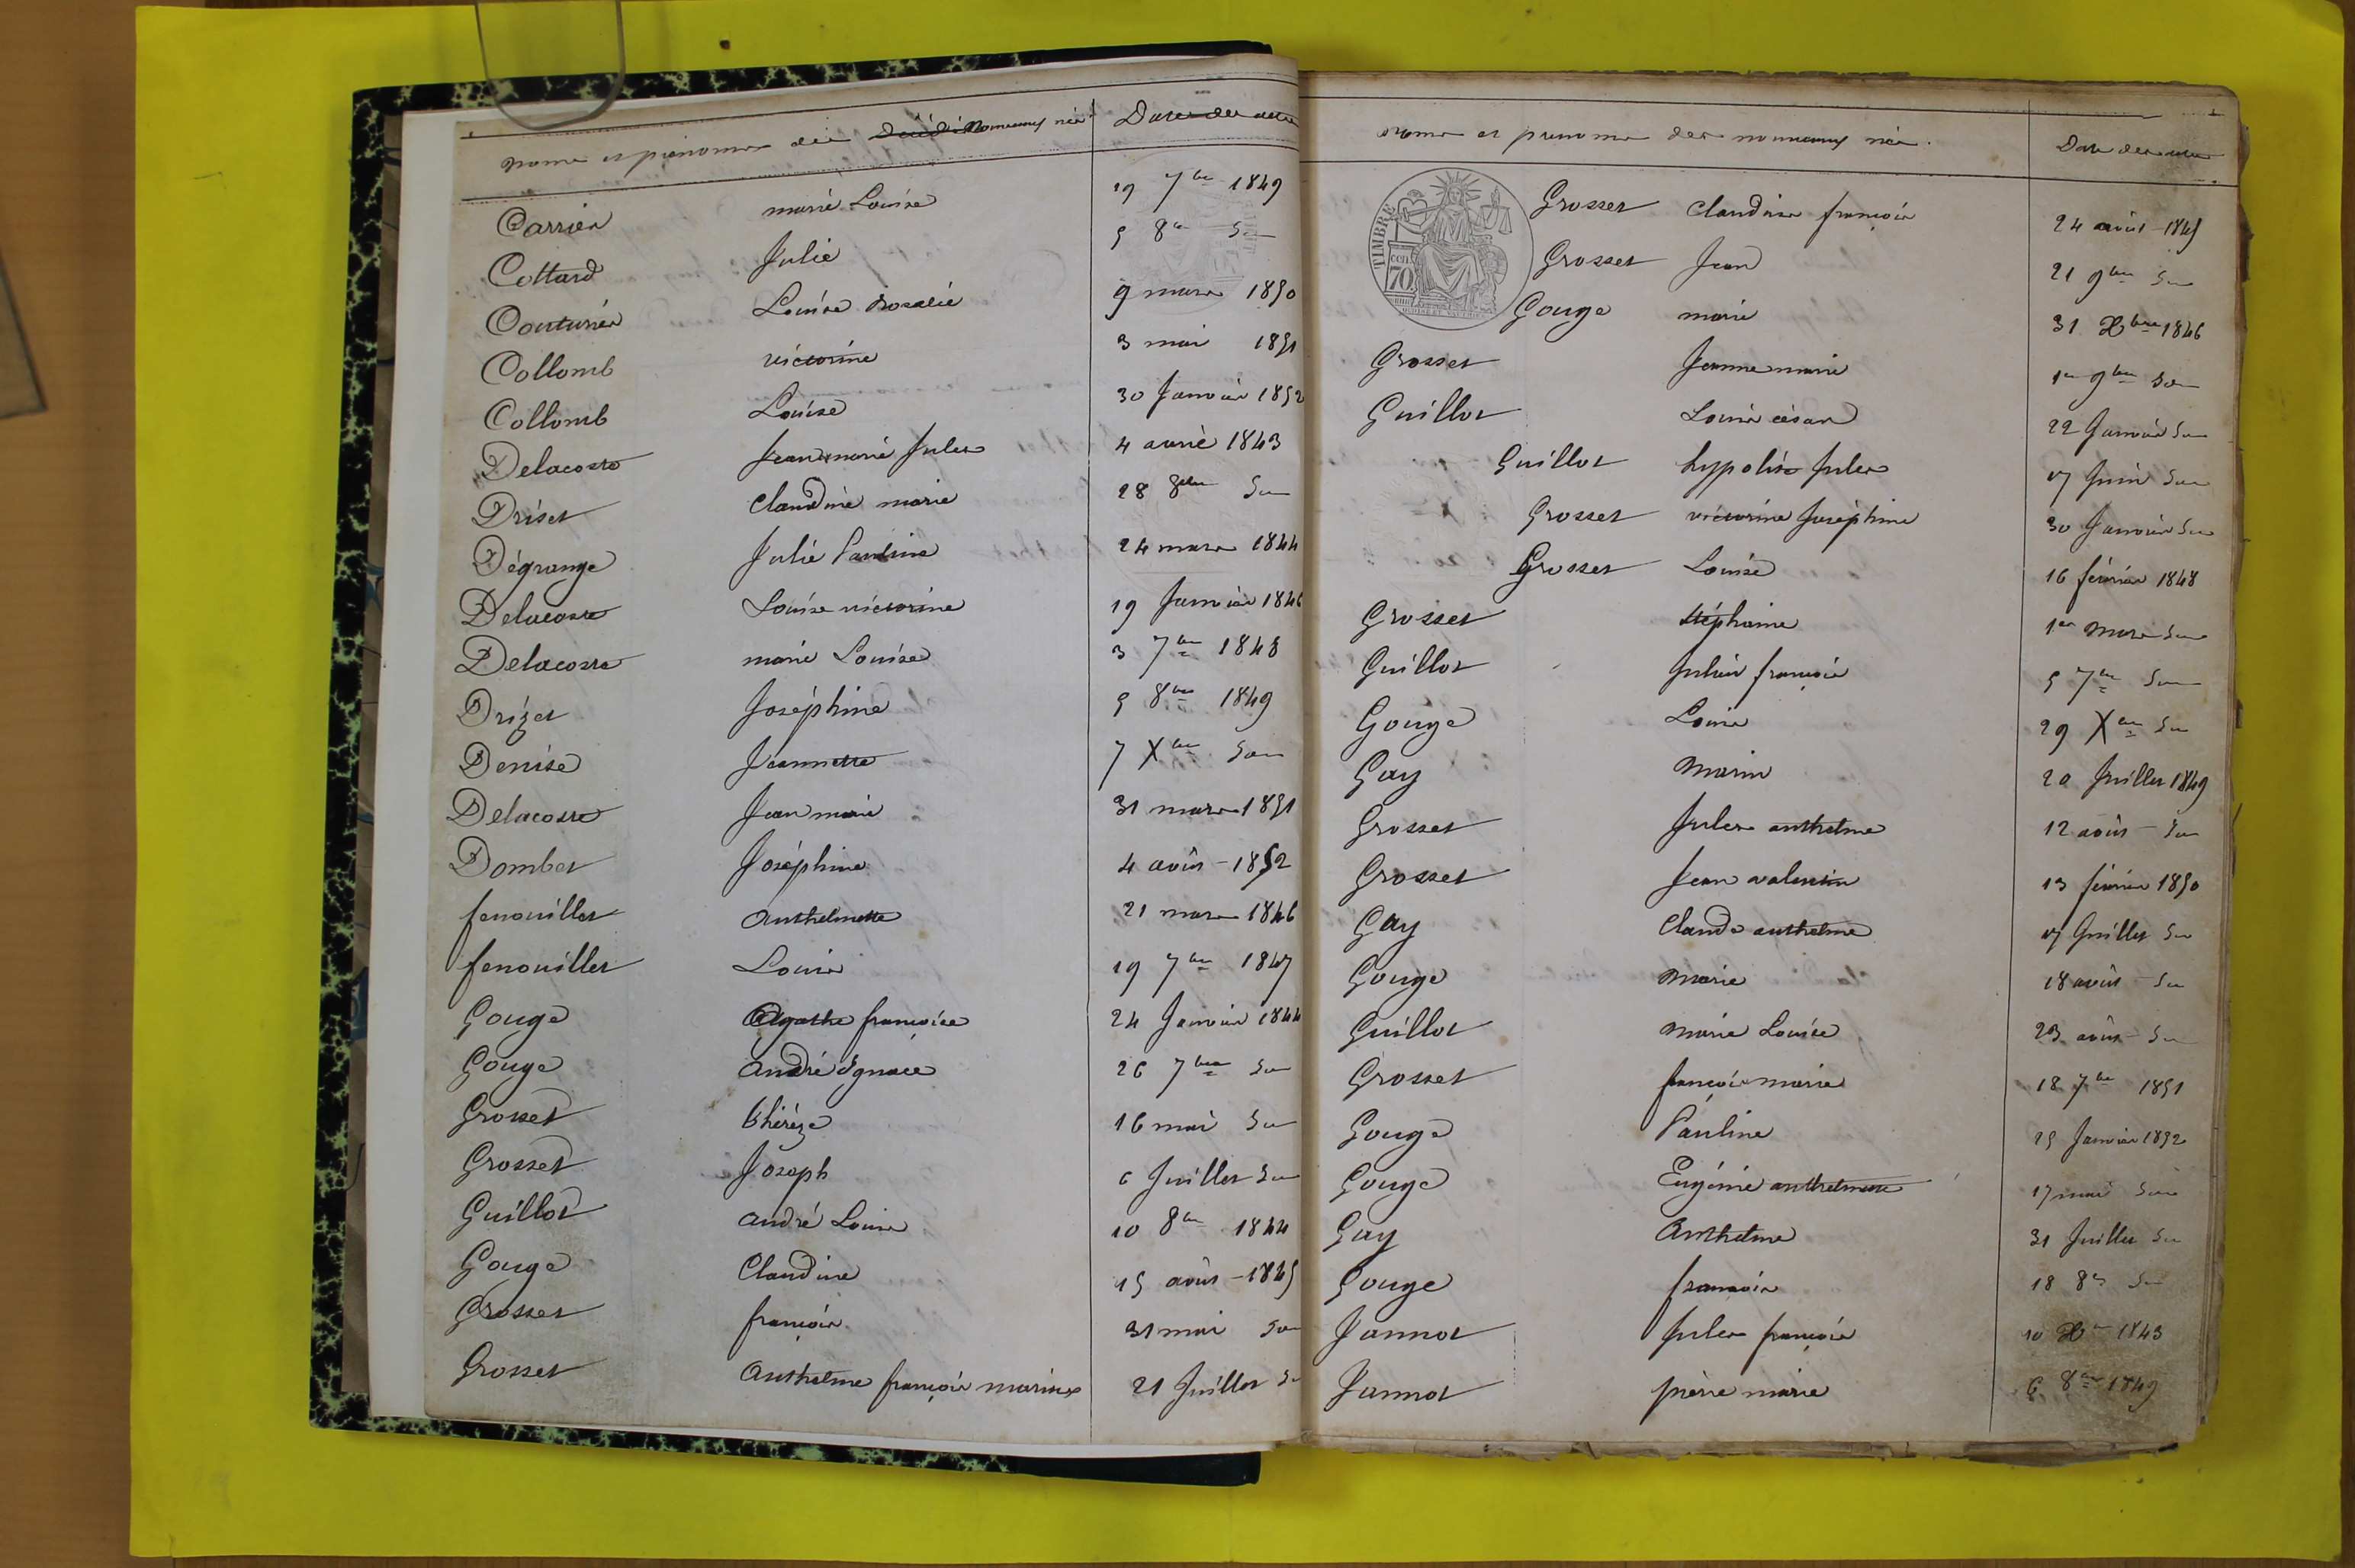 noms et prénoms des décédés nouveaux nés Date des actes
Carrier marie Louise 19 7bre 1849
Cottard Julie 5 8bre Sus
Couturier Louise Rosalie 9 mars 1850
Collomb victorine 3 mai 1851
Collomb Louise 30 Janvier 1852
Delacoste Jean marie Jules 4 avril 1843
Driset Claudine marie 28 8bre Sus
Dégrange Julie Pauline 24 mars 1844
Delacoste Louise victorine 19 Janvier 1846
Delacoste marie Louise 3 7bre 1848
Drizet Joséphine 5 8bre 1849
Denise Jeannette 7 Xbre Sus
Delacoste Jean marie 31 mars 1851
Dombet Joséphine 4 août 1852
fenouillet Anthelmette 21 mars 1846
fenouillet Louis 19 7bre 1847
Gouge Agathe françoise 24 Janvier 1844
Gouge André Ignace 26 7bre Sus
Grosset thérèze 16 mai Sus
Grosset Joseph 6 Juillet Sus
Guillot André Louis 10 8bre 1844
Gouge Claudine 15 août 1845
Grosset françois 31 mai Sus
Grosset Anthelme françois marius 21 Juillet Sus
noms et prénoms des nouveaux nés. Date des actes
TIMBRE
70
Grosset Claudius françois 24 août 1845
Grosset Jean 21 9bre Sus
Gouge marie 31 Xbre 1846
Grosset Jeanne marie 1er 9bre Sus
Guillot Louis césar 22 Janvier Sus
Guillot hypolite Jules 17 Juin Sus
Grosset victorine Joséphine 30 Janvier Sus
Grosset Louise 16 février 1848
Grosset Stéphanie 1er mars Sus
Guillot Julien françois 5 7bre Sus
Gouge Louis 29 Xbre Sus
Gay Marin 20 Juillet 1849
Grosset Jules anthelme 12 août Sus
Grosset Jean valentin 13 février 1850
Gay Claude anthelme 17 Juillet Sus
Gouge Marie 18 août Sus
Guillot Marie Louise 23 août Sus
Grosset françois marie 18 7bre 1851
Gouge Pauline 25 Janvier 1852
Gouge Eugénie anthelmette 17 mai Sus
Gay Anthelme 31 Juillet Sus
Gouge françois 18 8bre Sus
Jannot Jules françois 10 Xbre 1843
Jannot pierre marie 6 8bre 1849